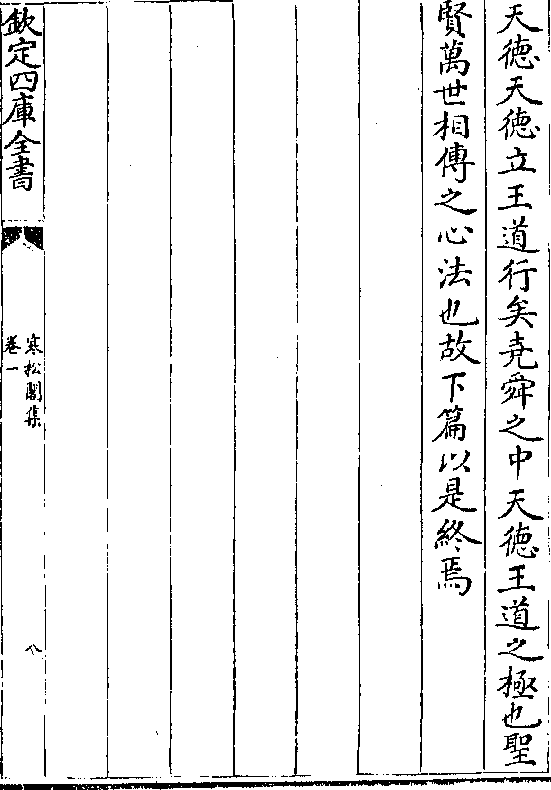 天德天德立王道行矣堯舜之中天德王道之極也聖
賢萬世相傳之心法也故下篇以是終焉
欽定四庫全書
寒松閣集
卷一
八